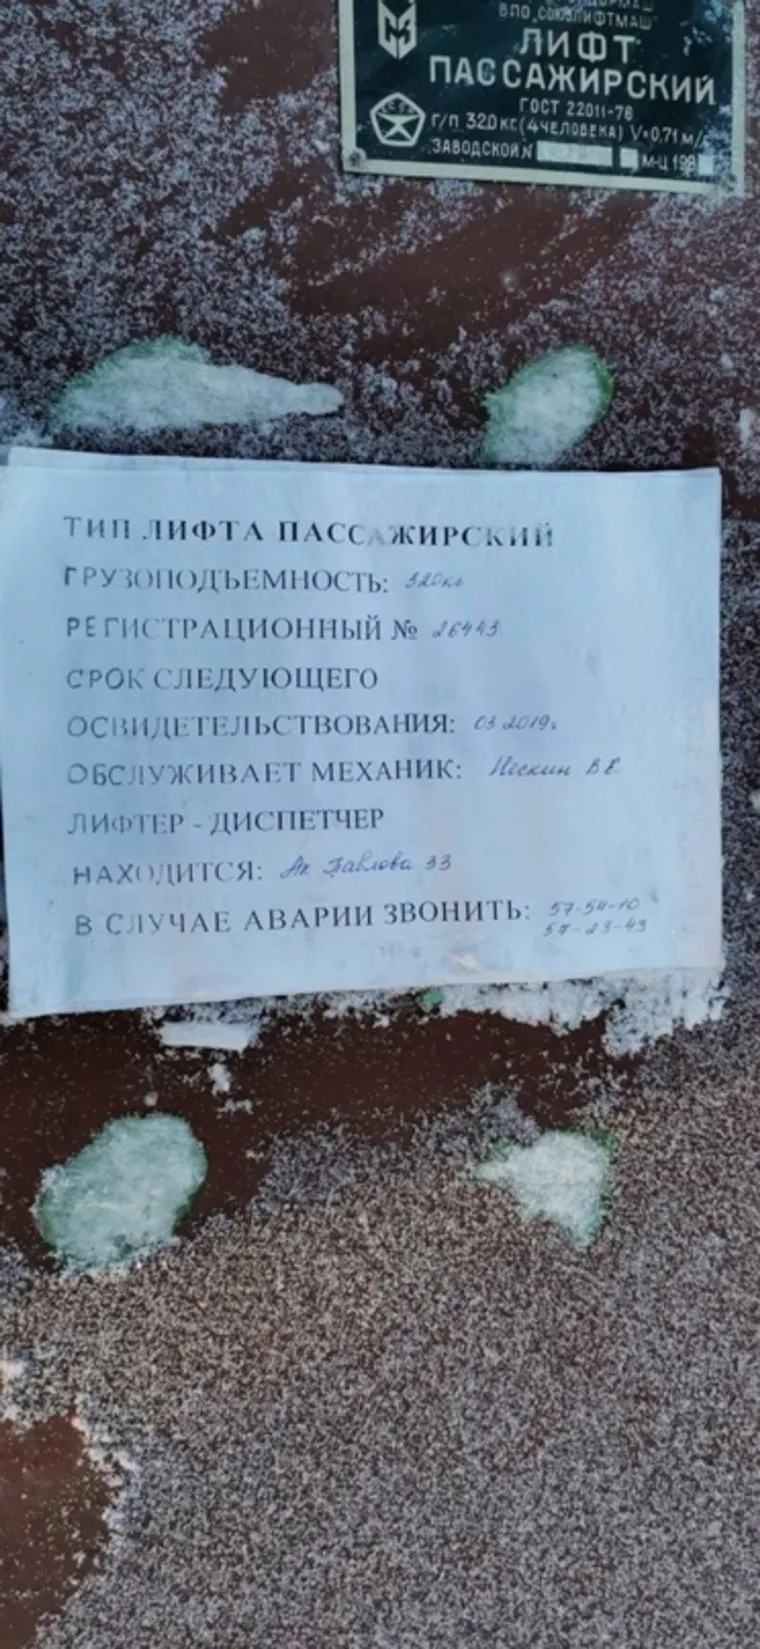 ВПО „СОЮЗЛИФТМАШ"
ЛИФТ
ПАССАЖИРСКИЙ
ГОСТ 22011-76
Г/П 320 КГ (4 ЧЕЛОВЕКА) V=0,71 М/
ЗАВОДСКОЙ N М-Ц 198
ТИП ЛИФТА ПАССАЖИРСКИЙ
ГРУЗОПОДЪЕМНОСТЬ: 320кг
РЕГИСТРАЦИОННЫЙ № 26443
СРОК СЛЕДУЮЩЕГО
ОСВИДЕТЕЛЬСТВОВАНИЯ: 03.2019г
ОБСЛУЖИВАЕТ МЕХАНИК: В Е
ЛИФТЕР - ДИСПЕТЧЕР
НАХОДИТСЯ: Ак Павлова 33
В СЛУЧАЕ АВАРИИ ЗВОНИТЬ: 57-54-10
57-23-43